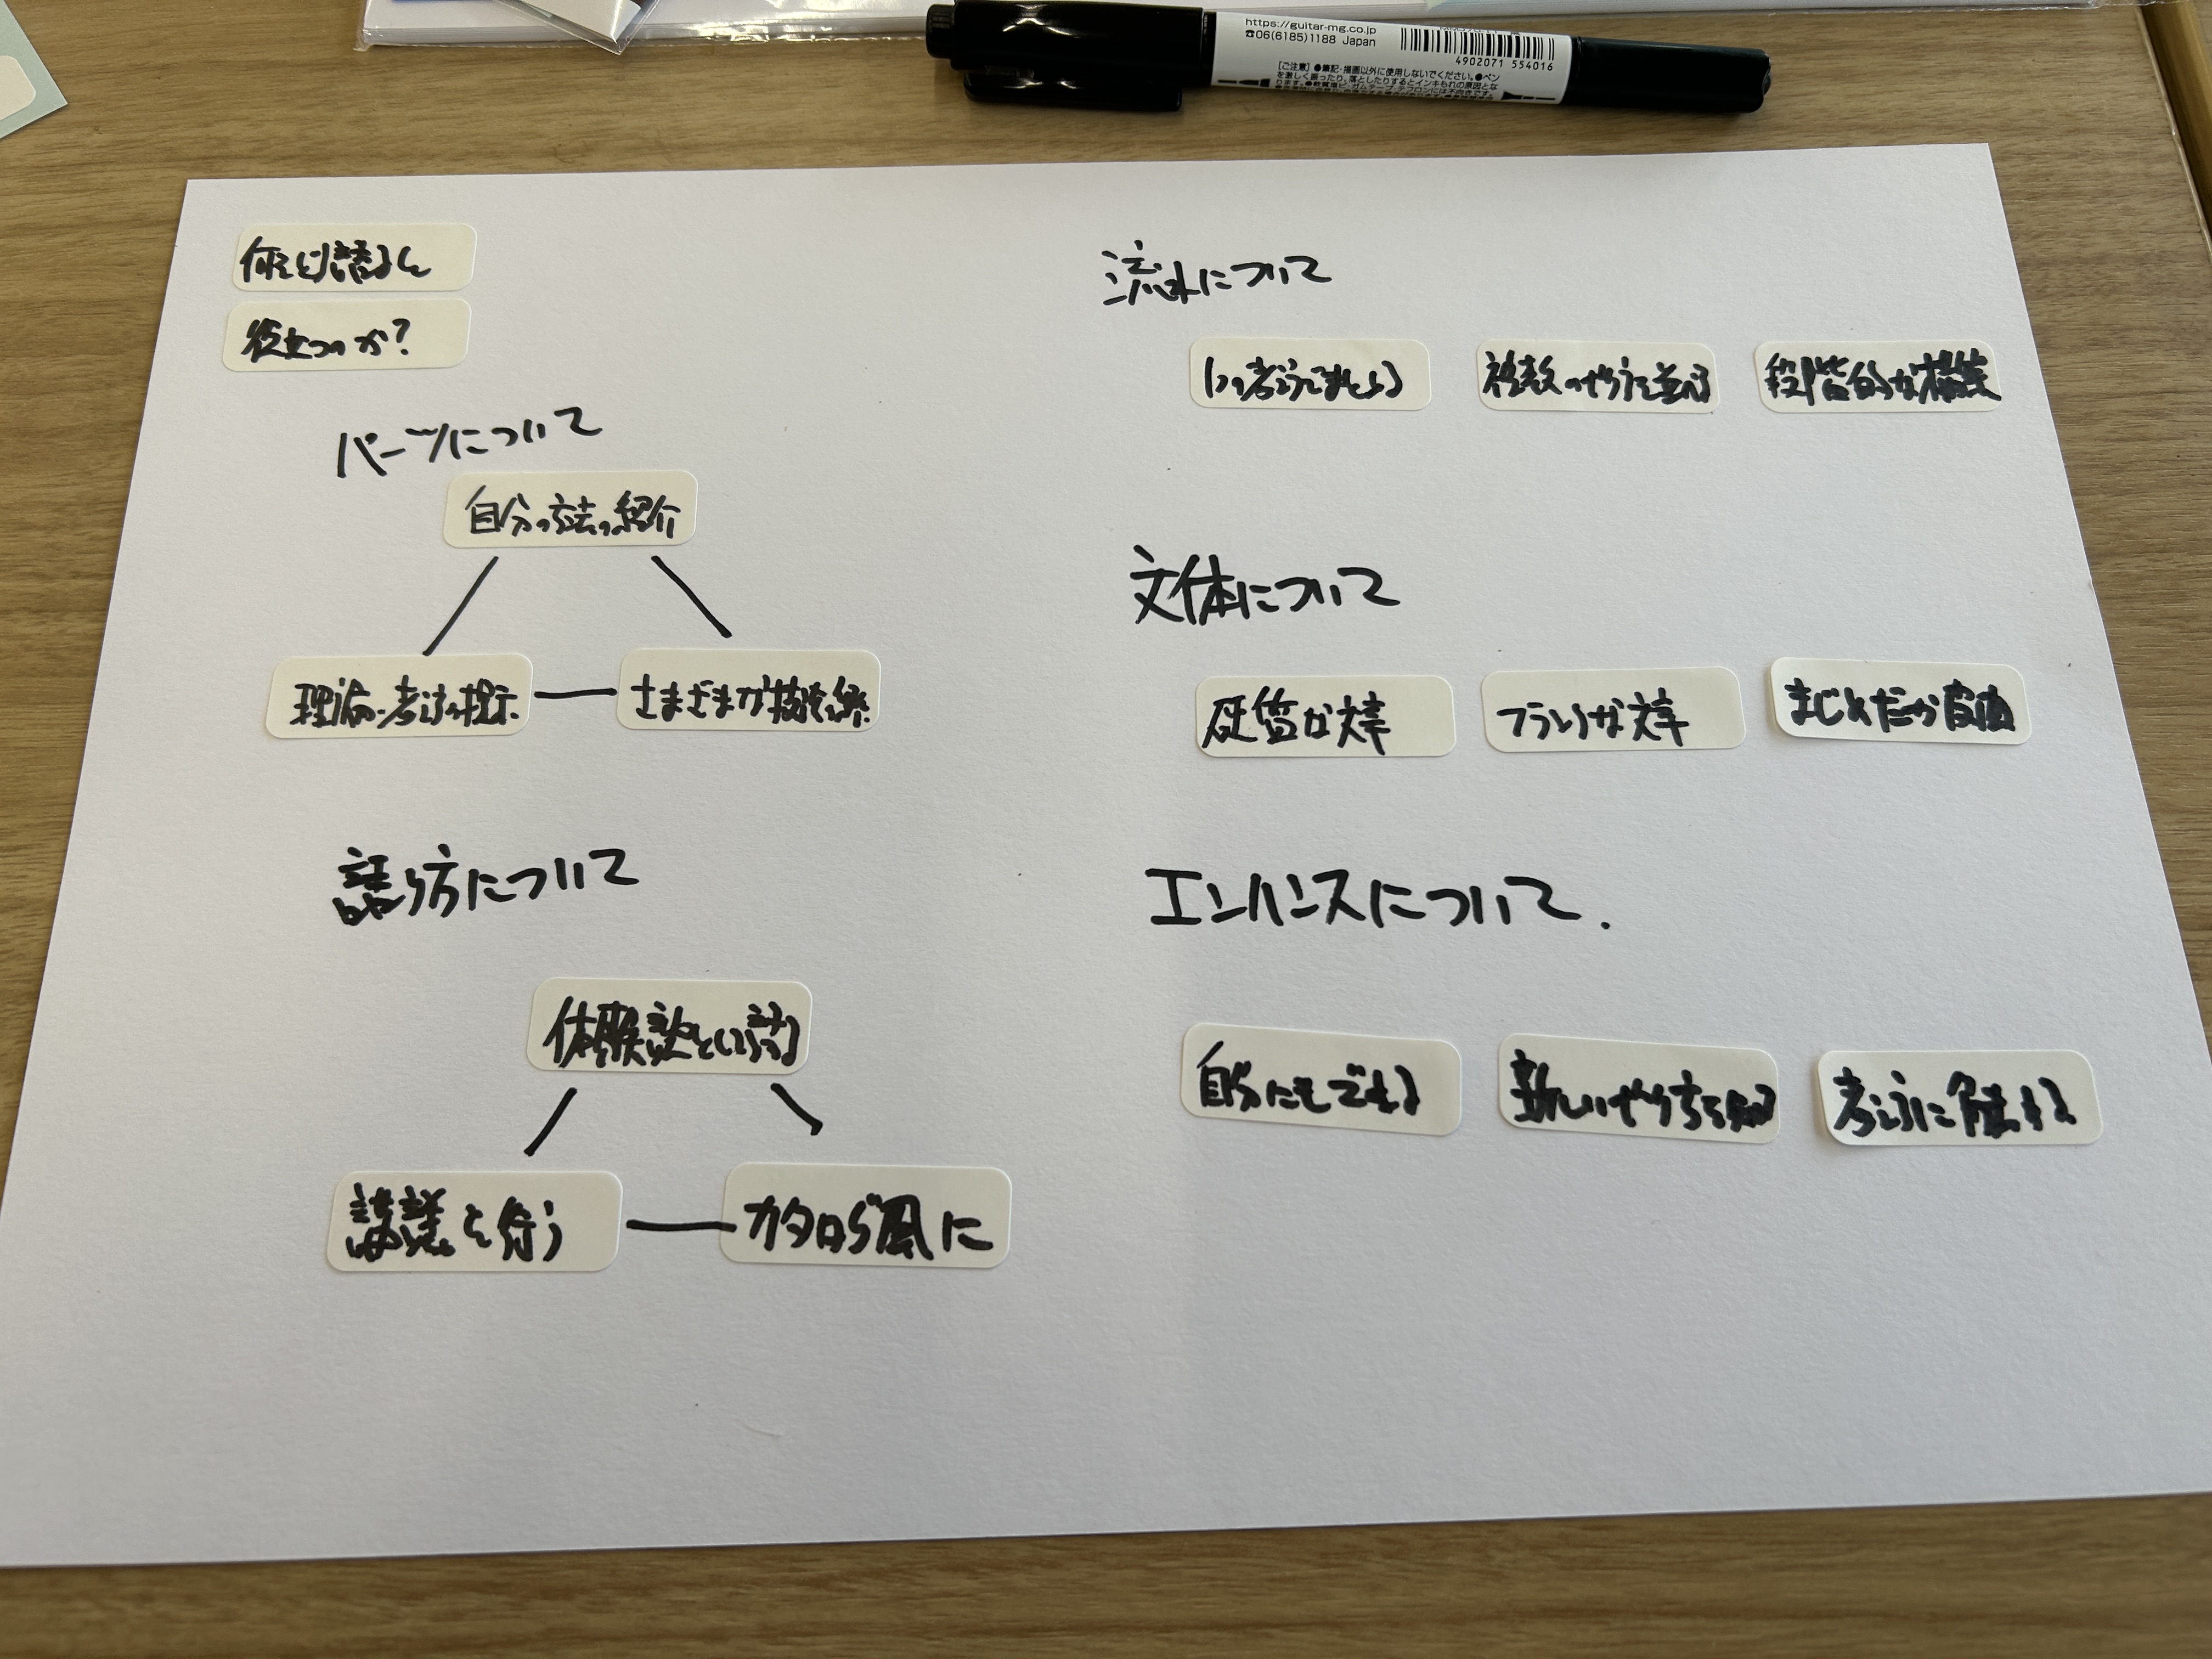 https://guitar-mg.co.jp
☎06(6185)1188 Japan
4902071 554016
[ご注意]●筆記・描画以外に使用しないでください。●ペン
を激しく振ったり、落としたりするとインキもれの原因とな
何を語ると
役立つのか?
パーツについて
自分の方法の紹介
理論・考え方の提示
さまざまな技法の紹介
語り方について
体験談として語る
講義を行う
カタログ風に
流れについて
1つの考えでまとめる
複数のやり方を並べる
段階的な構築
文体について
硬質な文章
フラットな文章
まじめだが
エンハンスについて.
自分にもできる
新しいやり方を知る
考え方に触れる